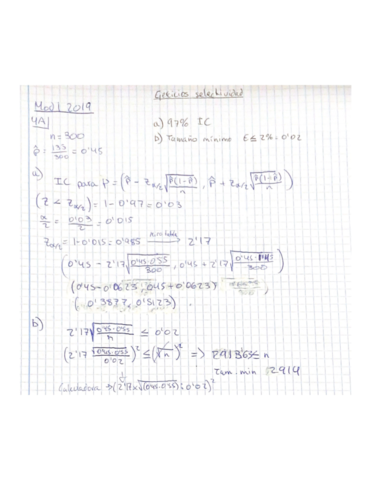 Ejercicios selectividad
Mod 1 2019
4A)
n=300
p̂ = 135/300 = 0'45
a) 97% IC
b) Tamaño mínimo E ≤ 2% = 0'02
a)
IC para p = (p̂ - Zα/2 √(p̂(1-p̂)/n) , p̂ + Zα/2 √(p̂(1-p̂)/n))
(Z ≤ Zα/2) = 1-0'97 = 0'03
α/2 = 0'03/2 = 0'015
Zα/2 = 1-0'015 = 0'985 → 2'17
(0'45 - 2'17 √(0'45·0'55/300) , 0'45 + 2'17 √(0'45·/300))
(0'45-0'0623, 0'45+0'0623)
(0'3877, 0'5123)
b)
2'17 √(0'45·0'55/n) ≤ 0'02
(2'17 √(0'45·0'55)/0'02)² ≤ (√n)² => ≤ n
Tam. min 2914
Calculadora → (2'17×√(0'45·0'55)÷0'02)²